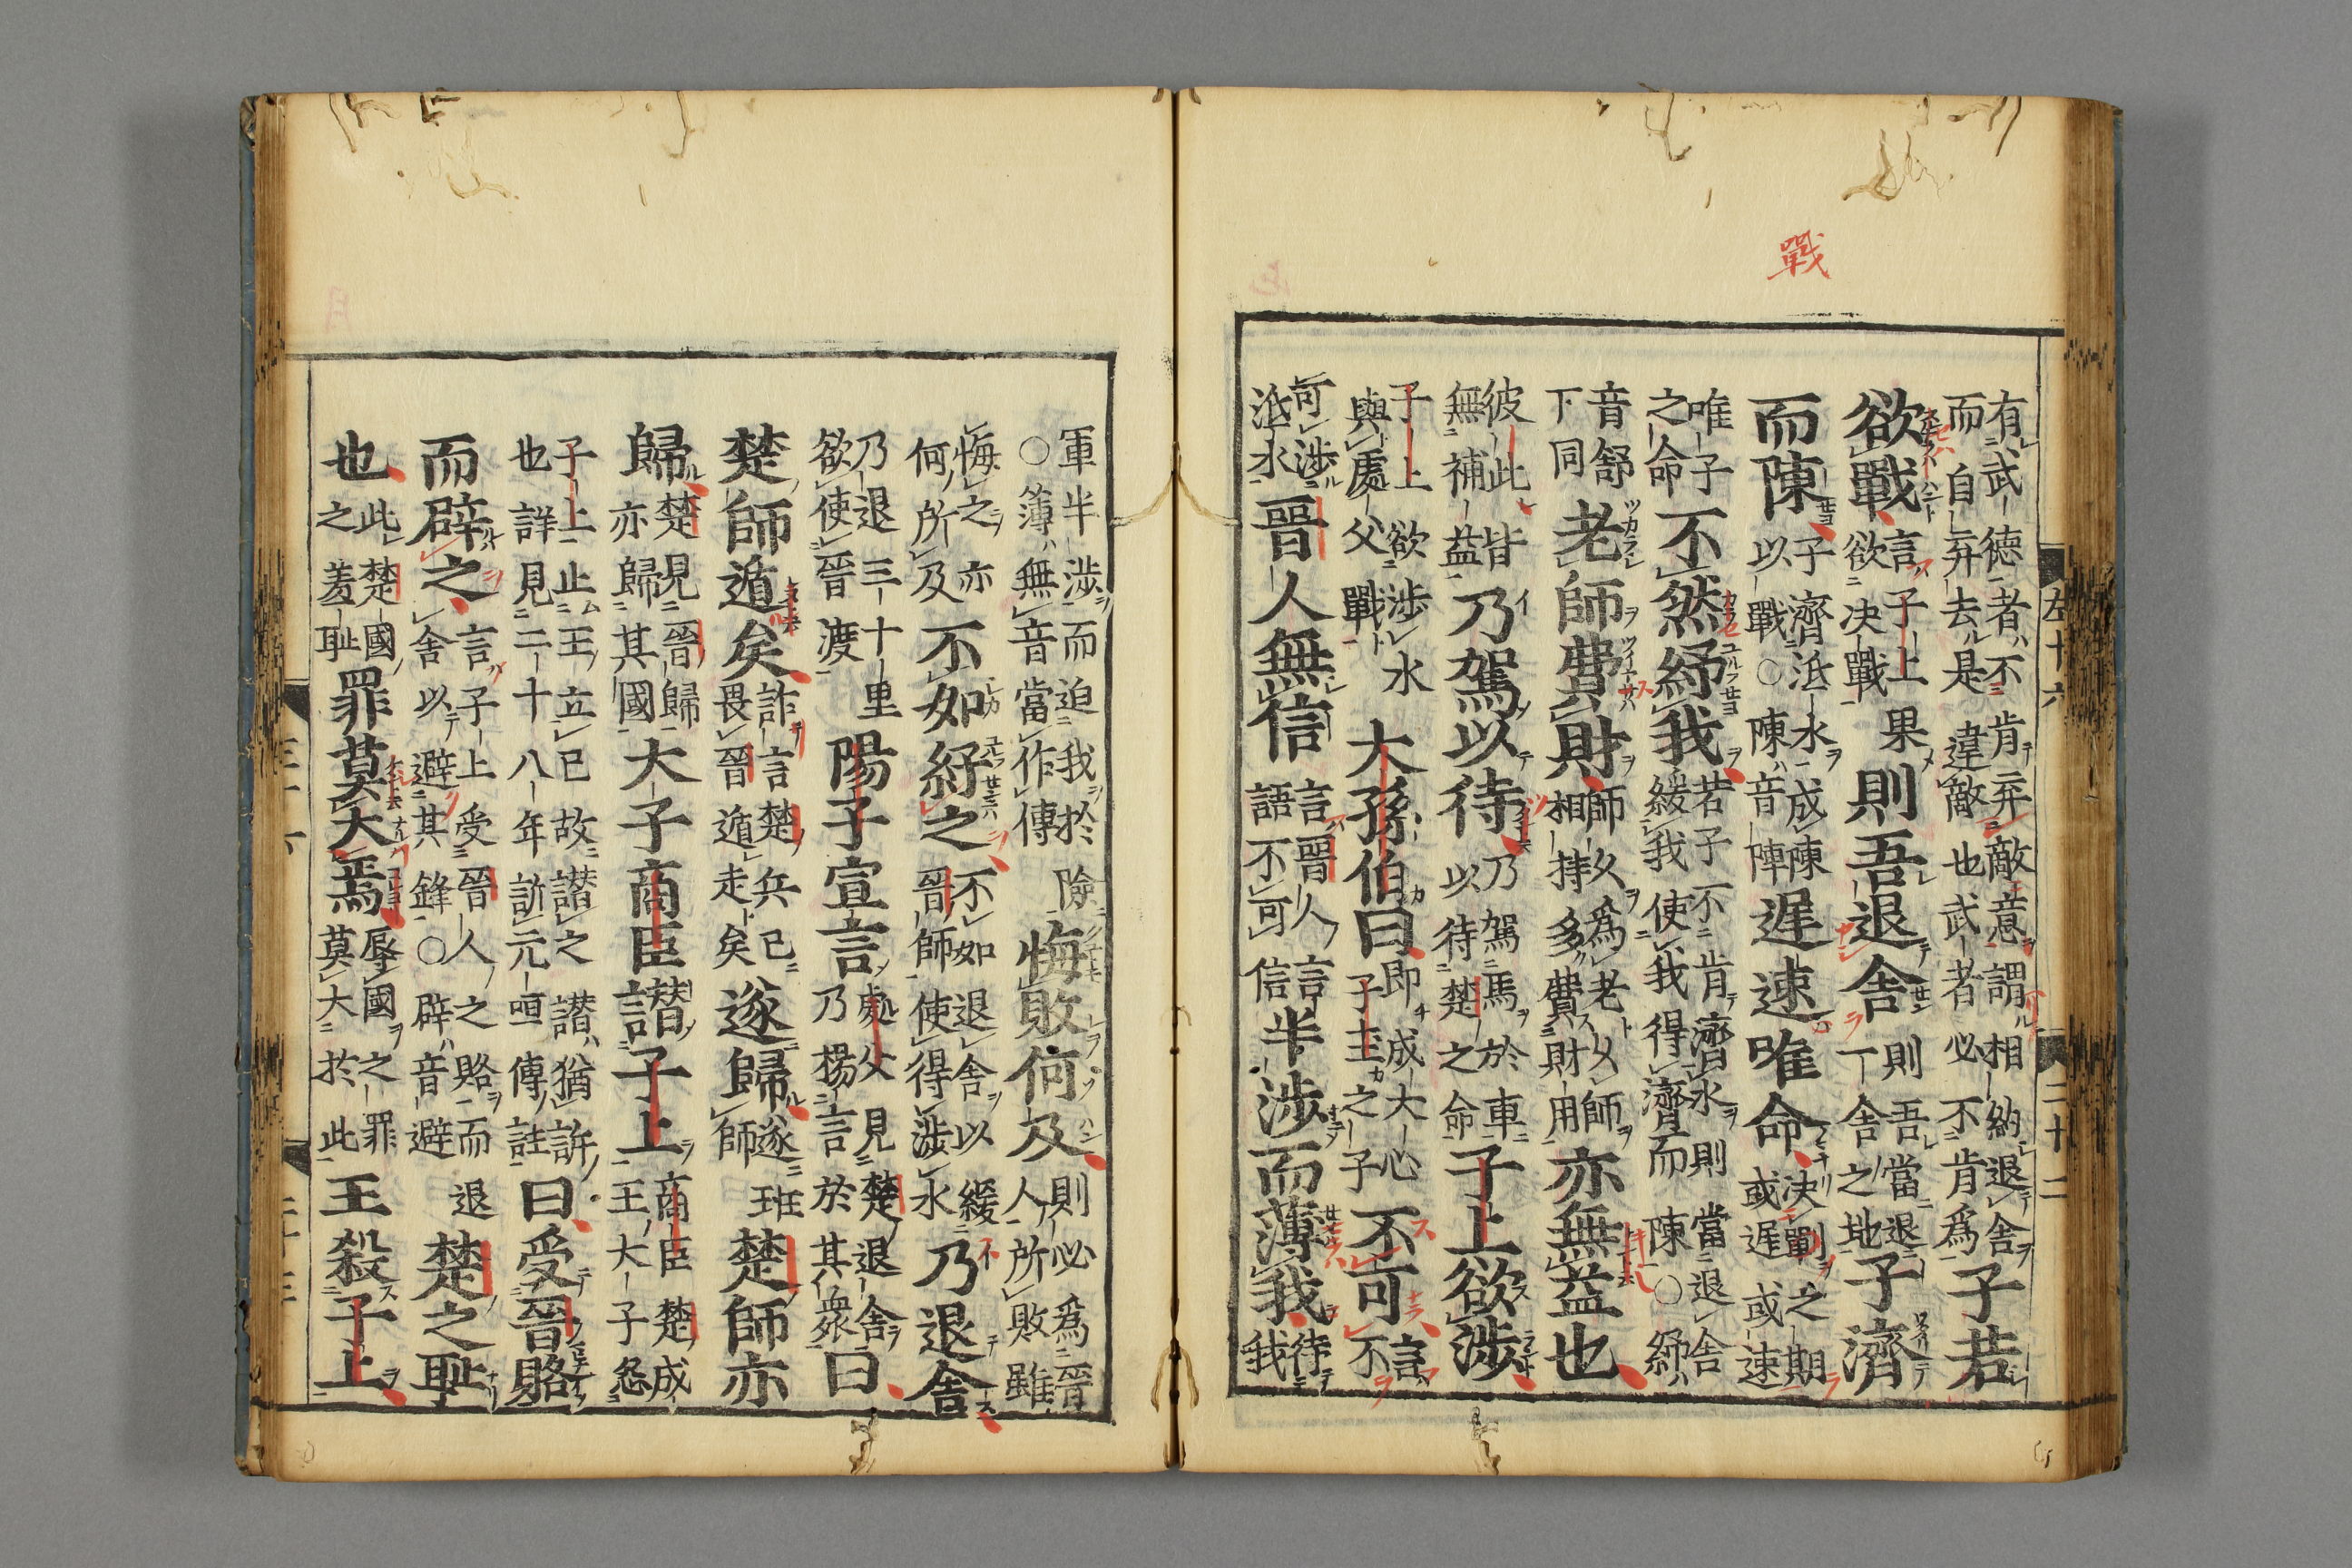 戰
有武德者不肯弃敵意謂相納退舍
而自弃去是違敵也武者必不肯爲
子若
欲戰
言子上果
欲决戰
則吾退舍
則吾當退
丁舍之地
子濟
而陳
子濟泜水成陳
以戰○陳音陣
遲速唯命
决戰之期
或遲或速
唯子
之命
不然紓我
若子不肯濟水則當退舍
緩我使我得濟而陳○紓
音舒
下同
老師費財
師久爲老久師
相持多費財用
亦無益也
彼此皆
無補益
乃駕以待
乃駕馬於車
以待楚之命
子上欲涉
子上欲涉水
與處父戰
大孫伯曰
即成大心
子玉之子
不可
言
不
可涉
泜水
晉人無信
言晉人言
語不可信
半涉而薄我
待
我
軍半涉而迫我於險
○薄無音當作傳
悔敗何及
則必爲晉
人所敗雖
悔之亦
何所及
不如紓之
不如退舍以緩
晉師使得涉水
乃退舍
乃退三十里
欲使晉渡
陽子宣言
處父見楚退舍
乃揚言於其衆
曰
楚師遁矣
詐言楚兵已
畏晉遁走矣
遂歸
遂班
師
楚師亦
歸
楚見晉歸
亦歸其國
大子商臣譖子上
商臣楚成
王大子怨
子上止王立已故譖之譖猶訴
也詳見二十八年訴元咺傳註
曰受晉賂
而辟之
言子上受晉人之賂而退
舍以避其鋒○辟音避
楚之耻
也
此楚國
之羞耻
罪莫大焉
辱國之罪
莫大於此
王殺子上
左十六
二十二